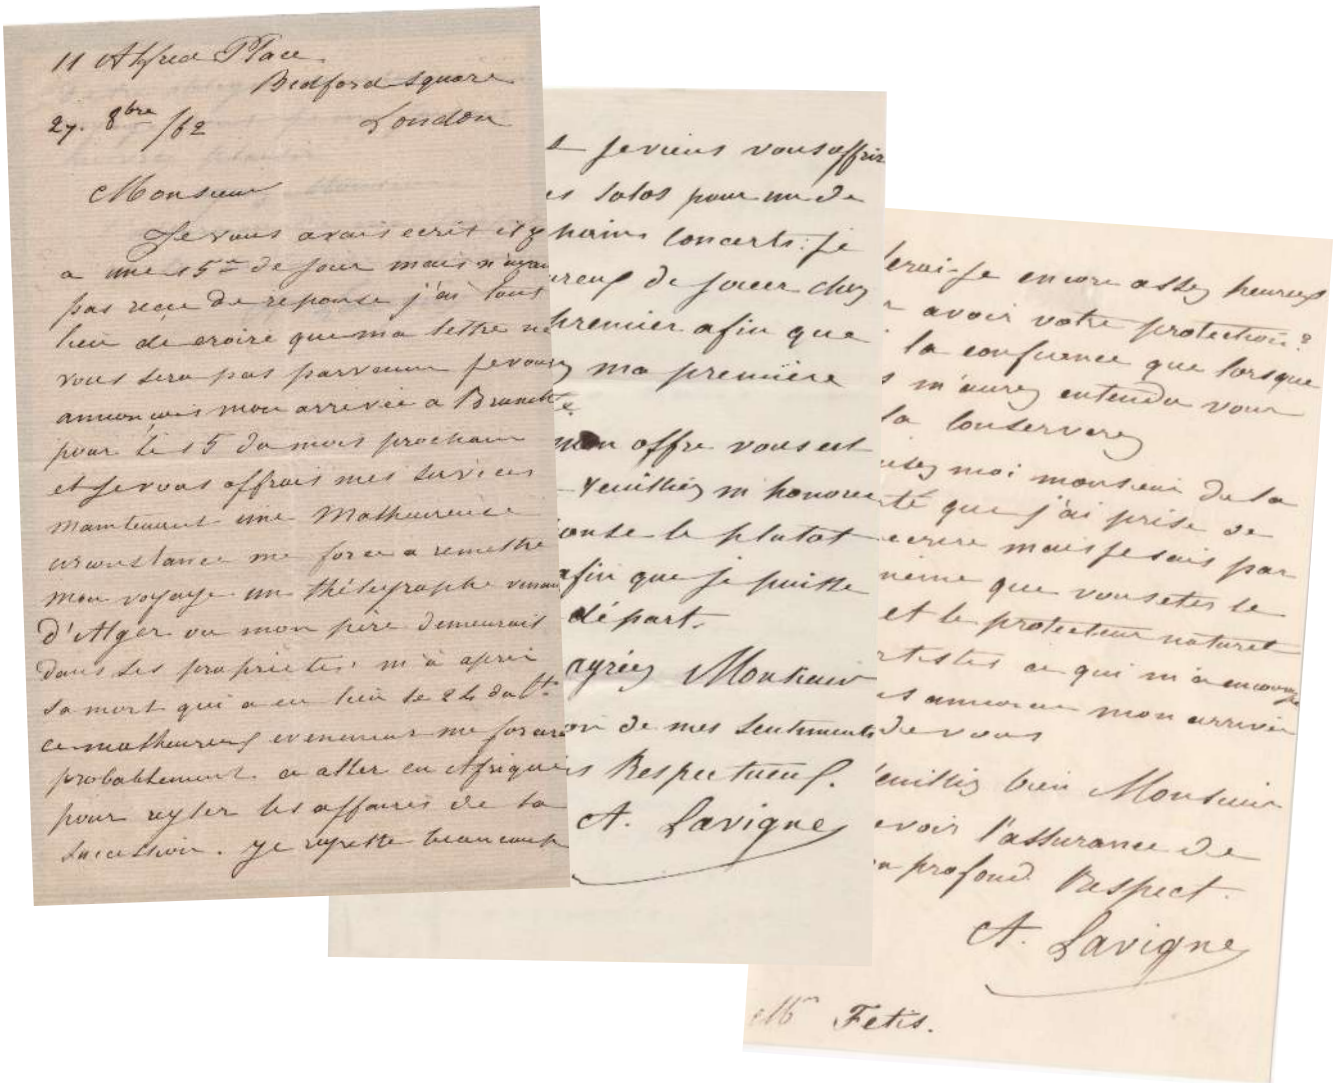 11 Alfred Place
Bedford Square
27. 8bre /62 London
Monsieur
Je vous avais ecrit il y
a une 15ne de jour mais n'ayant
pas recu de reponse j'ai tout
lieu de croire que ma lettre ne
vous sera pas parvenue je vous
annoncais mon arrivée a Bruxelles
pour le 15 du mois prochain
et je vous offrais mes services
maintenant une malheureuse
circonstance me force a remettre
mon voyage un thélegraphe venant
d'Alger ou mon père demeurait
dans ses proprietes m'a apris
sa mort qui a eu lieu le 24 du ct.
ce malheureux evenement me forcera
probablement a aller en Afrique
pour regler les affaires de sa
succession. je regrette beaucoup
je viens vous offrir
solos pour un de
concerts: je
de jouer chez
premier afin que
ma première
mon offre vous est
veuilliez m'honorer
le plutot
afin que je puisse
départ.
agréez Monsieur
de mes sentiments
Respectueux.
A. Lavigne
serai-je encore assez heureux
avoir votre protection?
la confience que lorsque
m'aurez entendu vous
la conserverez
moi monsieur de la
que j'ai prise de
ecrire mais je sais par
même que vous etes le
et le protecteur naturel
ce qui m'a encouragé
annoncer mon arrivée
de vous
Veuilliez bien Monsieur
l'assurance de
profond Respect.
A. Lavigne
Mr Fetis.